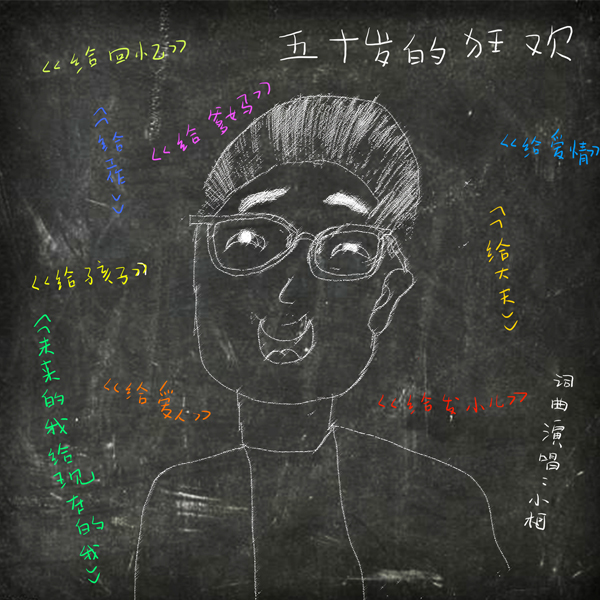 五十岁的狂欢
《给回忆》
《给爹妈》
《给爱情》
《给大夫》
《给孩子》
《未来的我给现在的我》
《给爱人》
《给发小儿》
词曲演唱:小柯